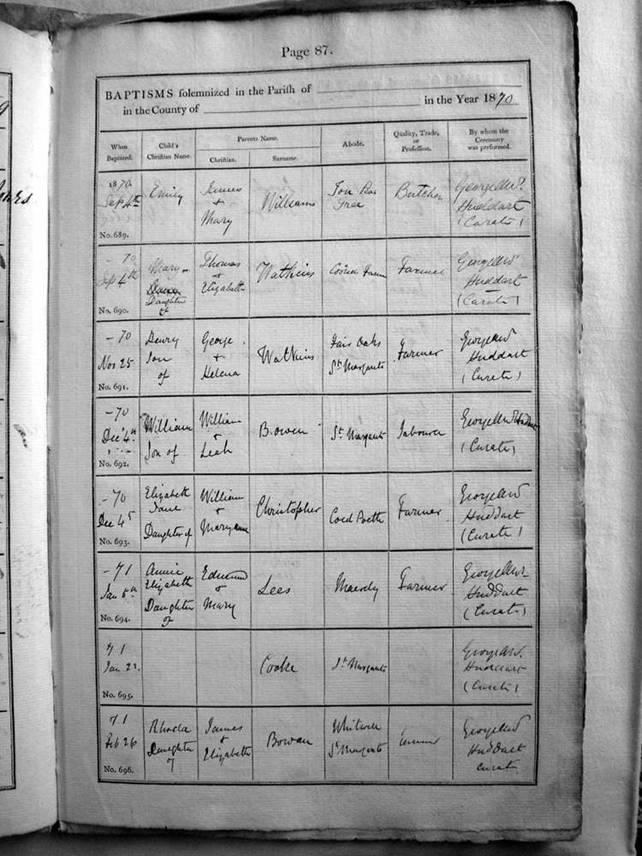 Page 87.
BAPTISMS solemnized in the Parish of
in the County of
in the Year 1870
When Baptized.
Child's Christian Name.
Parents Name.
Christian.
Surname.
Abode.
Quality, Trade, or Profession.
By whom the Ceremony was performed.
1870
Sep 4th
No. 689.
Emily
James
+
Mary
Williams
Tree
Butcher
George
Huddart
(Curate)
- 70
Sep 4th
No. 690.
Mary
Daughter
of
Thomas
+
Elizabeth
Watkins
Farmer
George
Huddart
(Curate)
- 70
Nov 25
No. 691.
Henry
Son
of
George
+
Helena
Watkins
Fair Oaks
St Margarets
Farmer
George
Huddart
(Curate)
- 70
Dec 4th
No. 692.
William
Son of
William
+
Leah
Bowen
St Margarets
Labourer
George Huddart
(Curate)
- 70
Dec 4
No. 693.
Elizabeth
Jane
Daughter of
William
+
Maryann
Christopher
Coed Poeth
Farmer
George
Huddart
(Curate)
- 71
Jan
No. 694.
Annie
Elizabeth
Daughter
of
Edmund
+
Mary
Lees
Farmer
George
Huddart
(Curate)
71
Jan 22.
No. 695.
Cooke
St Margarets
George
Huddart
(Curate)
71
Feb 26
No. 696.
Rhoda
Daughter
of
James
+
Elizabeth
Bowen
Whitwall
St Margarets
George
Huddart
Curate